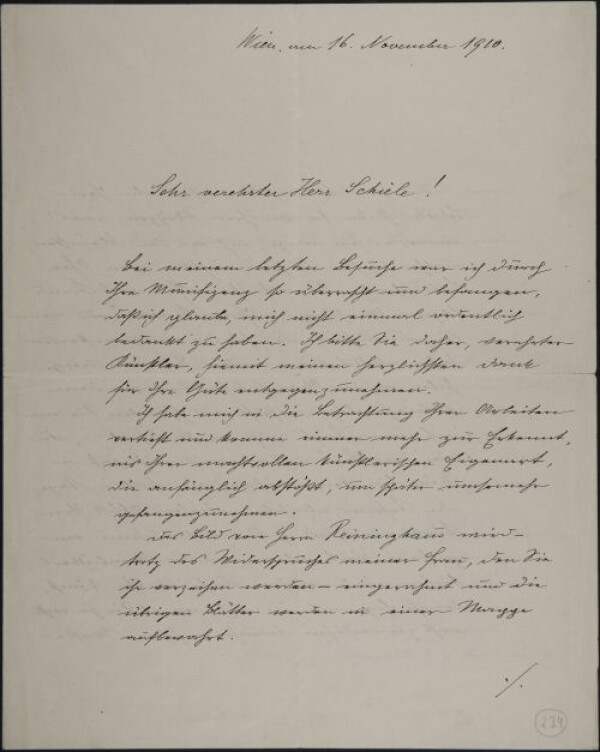 Wien, am 16. November 1910.
Sehr verehrter Herr Schiele!
Bei meinem letzten Besuche war ich durch
Ihre Munifizenz so überrascht und befangen,
daß ich glaube, mich nicht einmal ordentlich
bedankt zu haben. Ich bitte Sie daher, verehrter
Künstler, hiemit meinen herzlichsten Dank
für Ihre Güte entgegenzunehmen.
Ich habe mich in die Betrachtung Ihrer Arbeiten
vertieft und komme immer mehr zur Erkennt-
nis Ihrer machtvollen künstlerischen Eigenart,
die anfänglich abstößt, um später umsomehr
gefangenzunehmen.
Das Bild von Herrn Reininghaus wird –
trotz des Widerspruches meiner Frau, den Sie
ihr verzeihen werden – eingerahmt und die
übrigen Blätter werden in einer Mappe
aufbewahrt.
./.
234